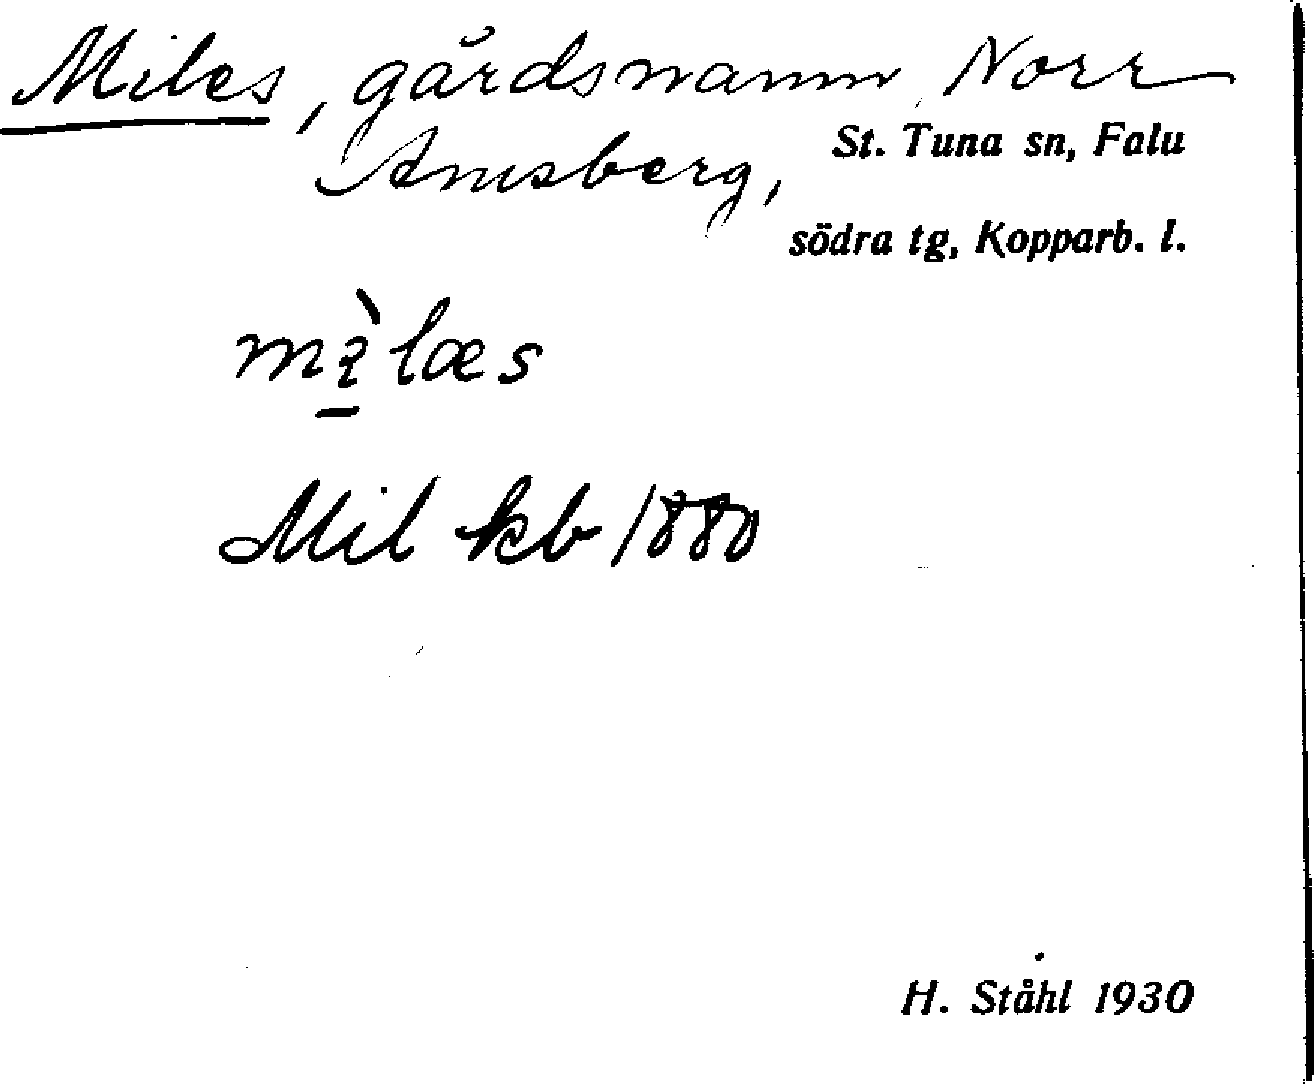 Miles, gårdsnamn, Norr
Amsberg,
St. Tuna sn, Falu
södra tg, Kopparb. l.
mì̱læs
Mil kb 1880
H. Ståhl 1930